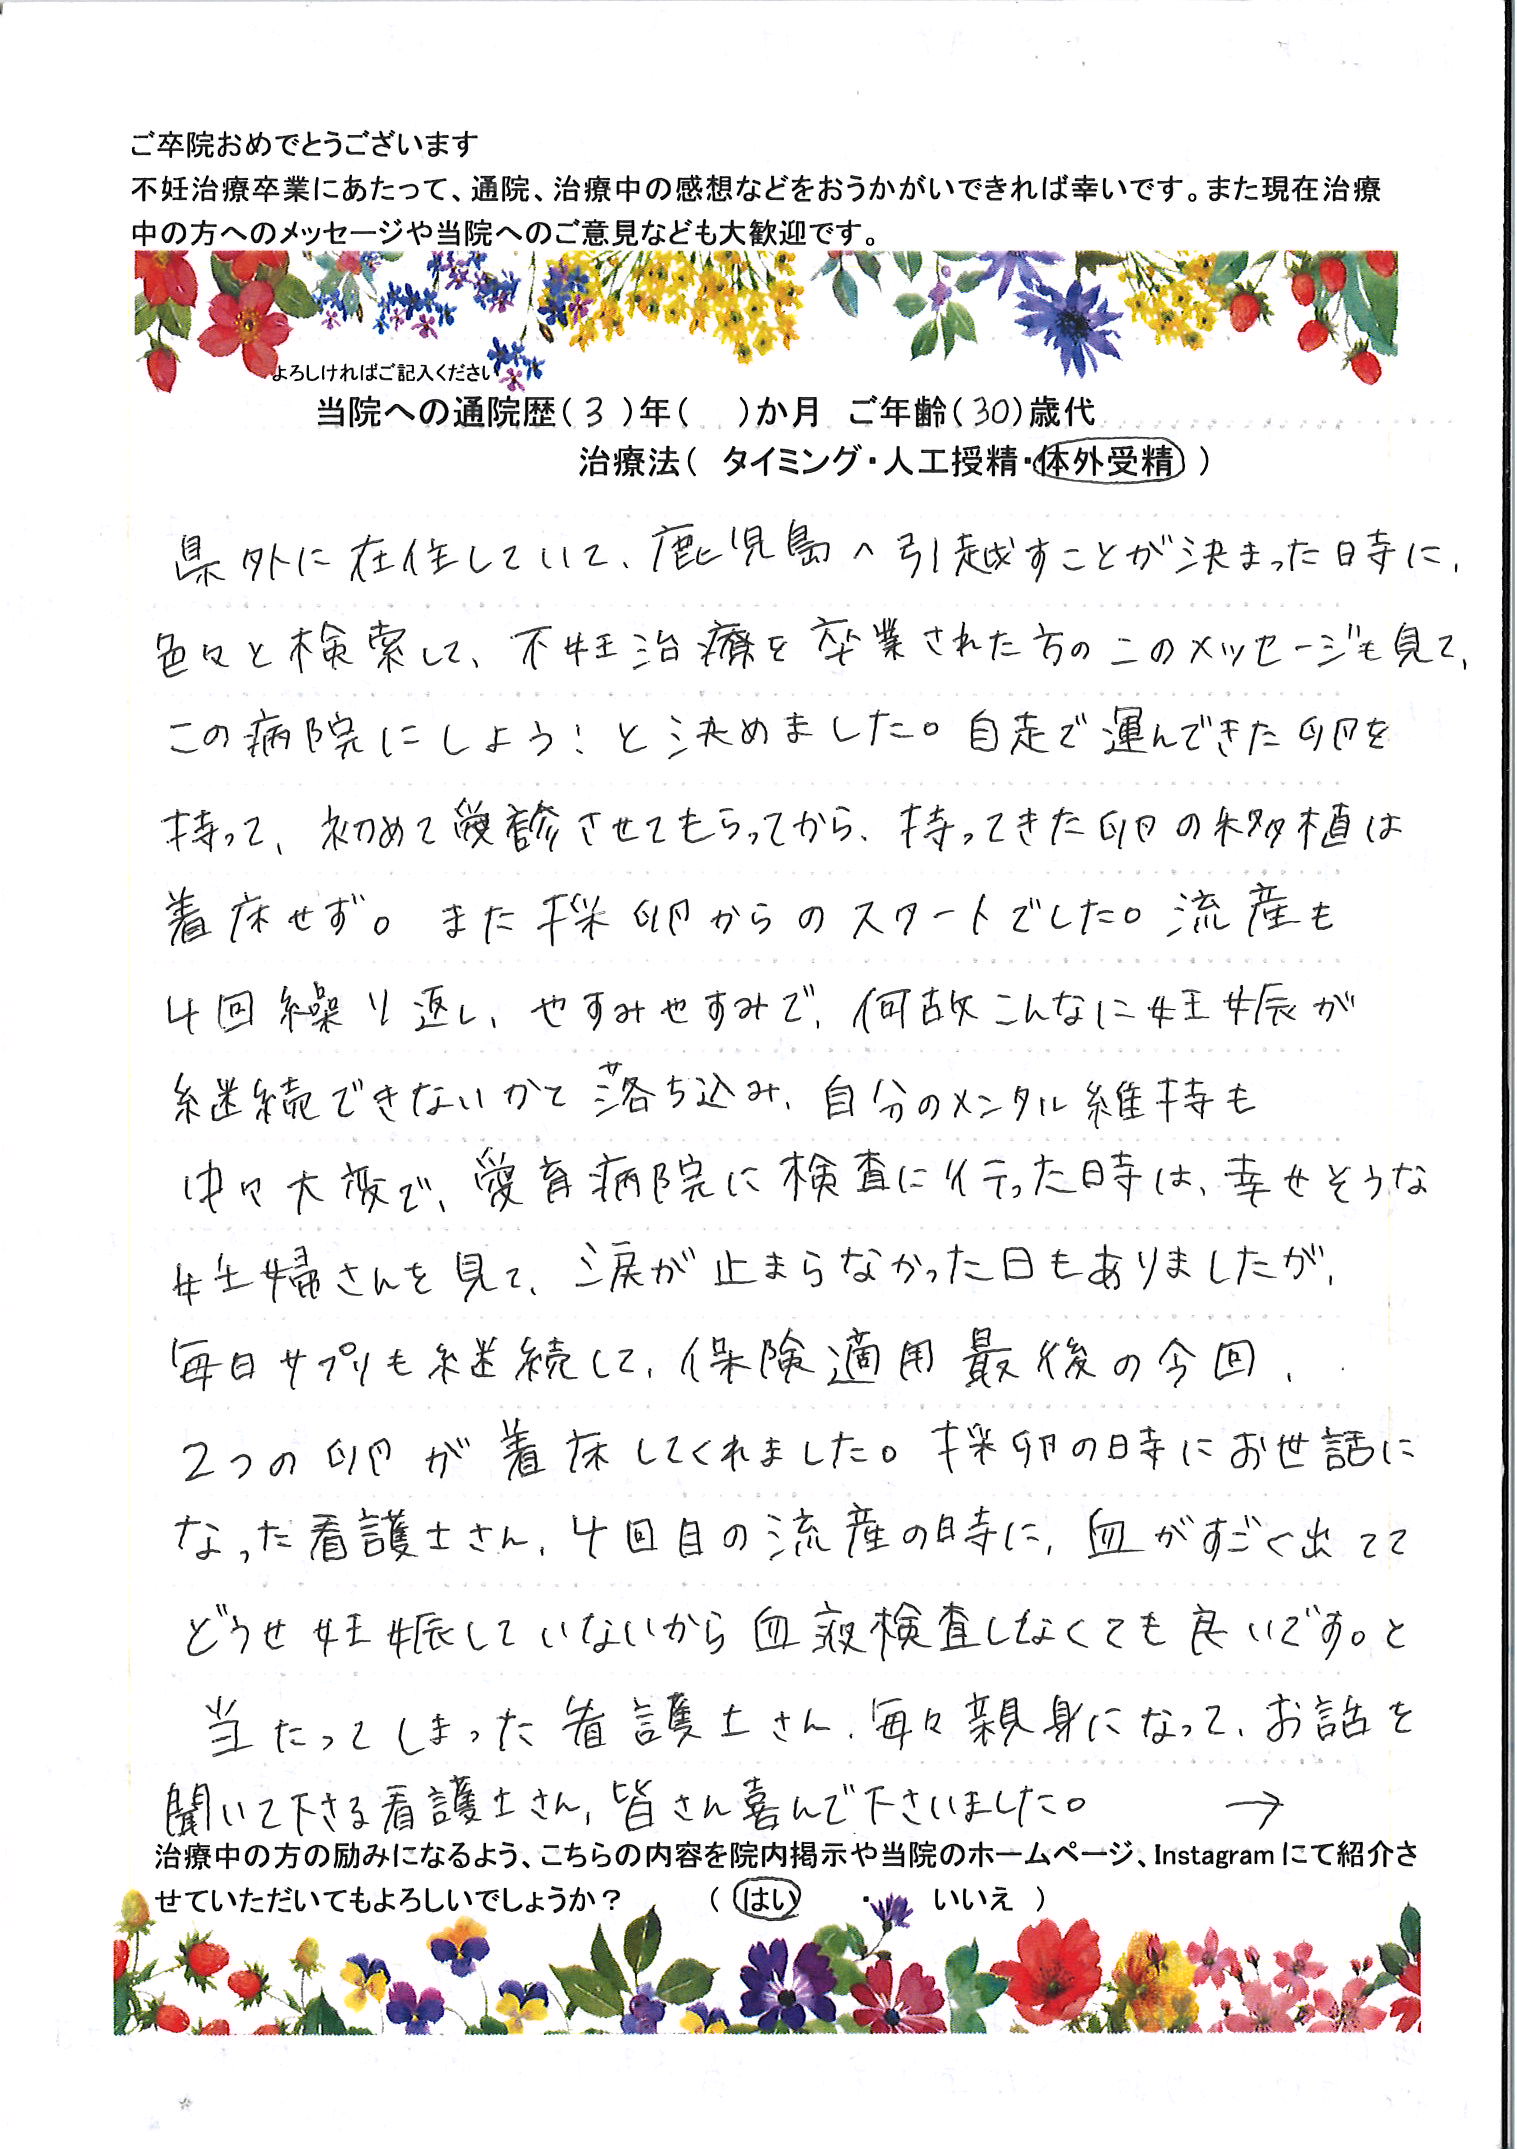 ご卒院おめでとうございます
不妊治療卒業にあたって、通院、治療中の感想などをおうかがいできれば幸いです。また現在治療
中の方へのメッセージや当院へのご意見なども大歓迎です。
よろしければご記入ください
当院への通院歴(3)年( )か月 ご年齢(30)歳代
治療法( タイミング・人工授精・体外受精 )
県外に在住していて、鹿児島へ引越すことが決まった時に、
色々と検索して、不妊治療を卒業された方のこのメッセージも見て、
この病院にしよう!と決めました。自走で運んできた卵を
持って、初めて受診させてもらってから、持ってきた卵の移植は
着床せず。また採卵からのスタートでした。流産も
4回繰り返し、やすみやすみで、何故こんなに妊娠が
継続できないかと落ち込み、自分のメンタル維持も
中々大変で、愛育病院に検査に行った時は、幸せそうな
妊婦さんを見て、涙が止まらなかった日もありましたが、
毎日サプリも継続して、保険適用最後の今回、
2つの卵が着床してくれました。採卵の時にお世話に
なった看護士さん、4回目の流産の時に、血がすごく出てて
どうせ妊娠していないから血液検査しなくても良いです。と
当たってしまった看護士さん、毎々親身になって、お話を
聞いて下さる看護士さん、皆さん喜んで下さいました。 →
治療中の方の励みになるよう、こちらの内容を院内掲示や当院のホームページ、Instagramにて紹介さ
せていただいてもよろしいでしょうか? ( はい ・ いいえ )